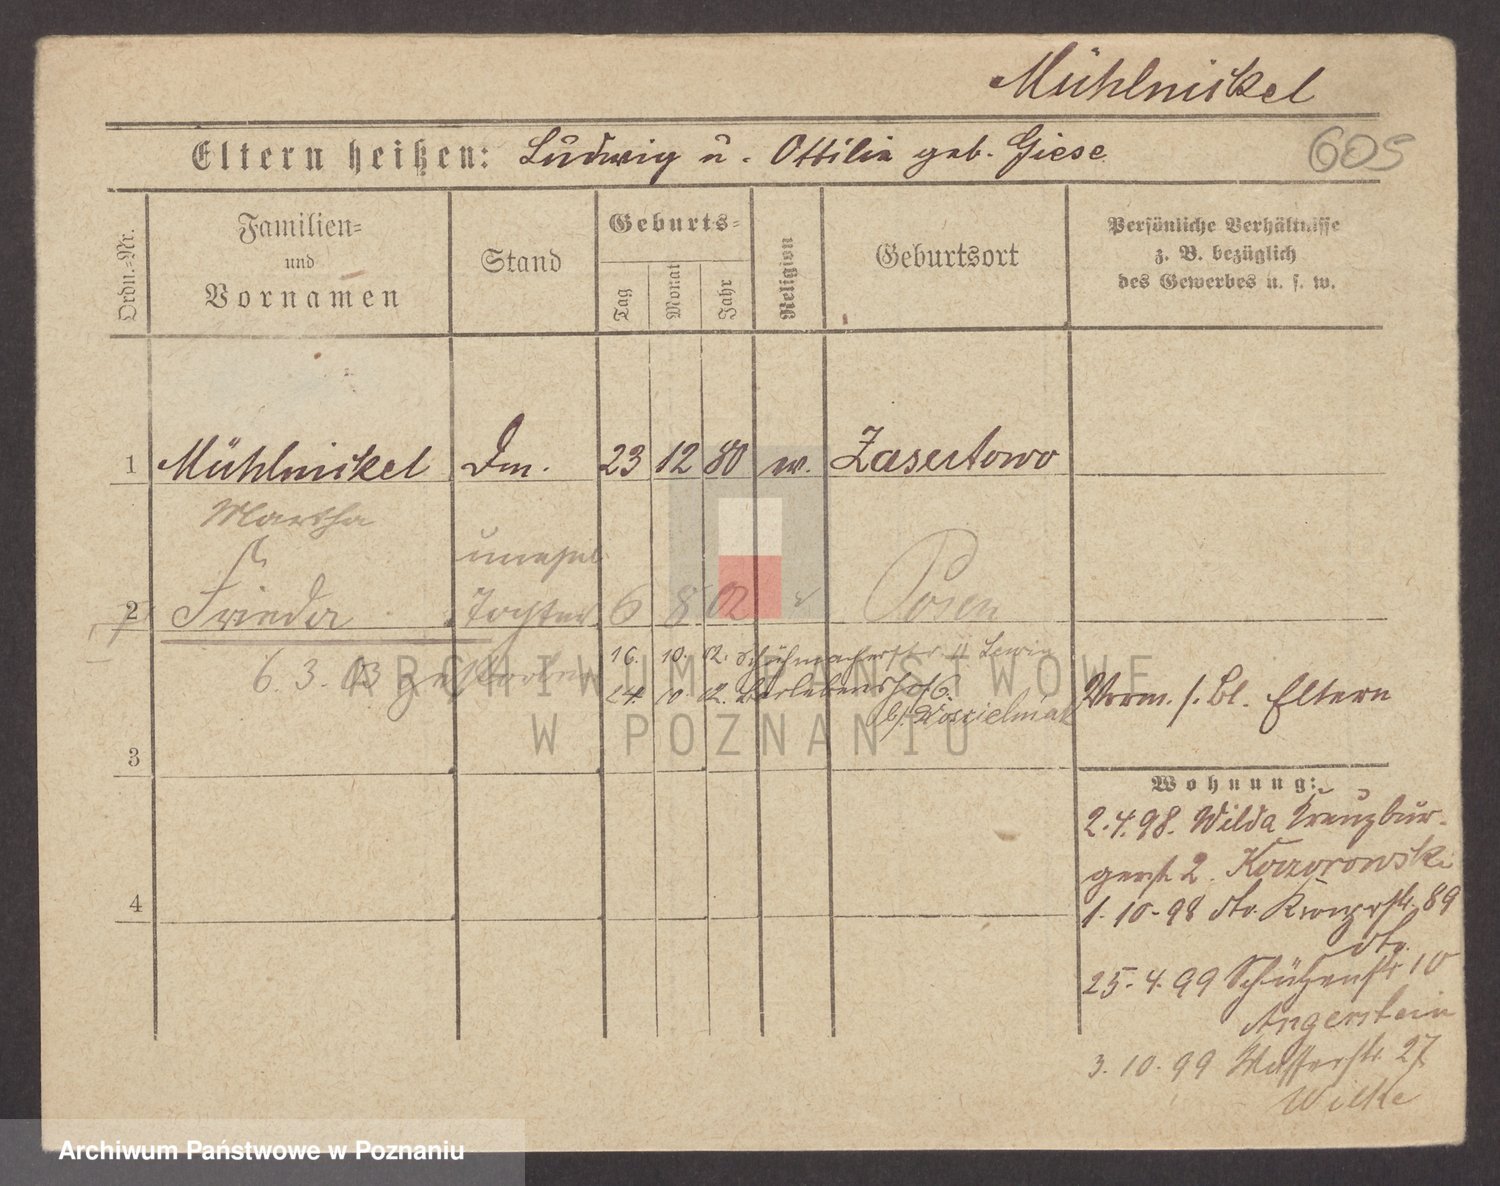 Mühlnickel
605
Eltern heißen: Ludwig u. Ottilie geb. Giese
Ordn.=Nr.
Familien=
und
Vornamen
Stand
Geburts=
Tag
Monat
Jahr
Religion
Geburtsort
Persönliche Verhältnisse
z. B. bezüglich
des Gewerbes u. s. w.
1 Mühlnickel Dm. 23 12 80 ev. Zasutowo
Martha
unehel.
2 Frieda Tochter 6 8 02 Posen
6. 3. 03 gestorben
16. 10. 02. Schuhmacherstr 11 Lewin
24. 10. 02.
b/. Koscielniak
Verm. s. Bl. Eltern
3
Wohnung:
2.4.98. Wilda Kreuzbur-
gerst. 2.
1. 10. 98 dto. 89
dto.
25. 4. 99 Schützenstr 10
Angerstein
3. 10. 99 Wasserstr. 27
Wilke
4
ARCHIWUM PAŃSTWOWE
W POZNANIU
Archiwum Państwowe w Poznaniu